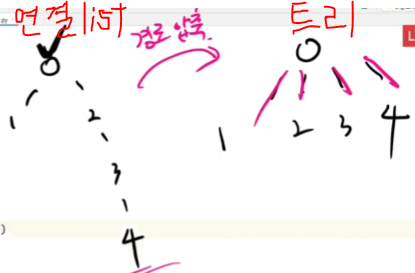 연결list
경로 압축.
트리
L
0
1
2
3
4
0
1 2 3 4
)